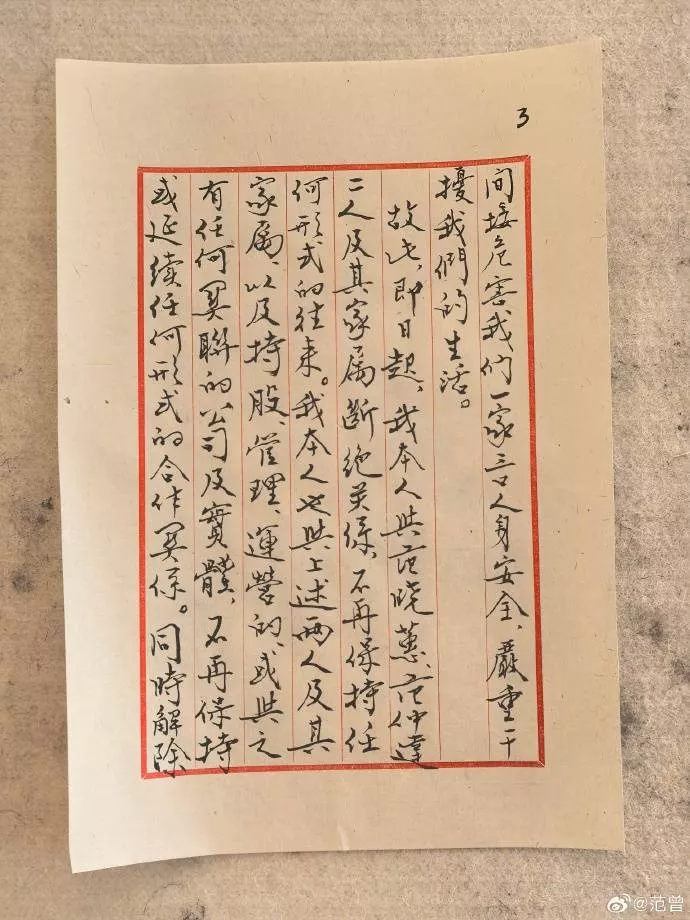 3
间接危害我们一家三口人身安全、嚴重干
擾我們的生活。
故此，即日起，我本人與范曉蕙、范仲達
二人及其家属斷绝关係、不再保持任
何形式的往来。我本人也與上述两人及其
家属、以及持股、管理、運营的、或與之
有任何関聯的公司及實體、不再保持
或延續任何形式的合作関係。同時解除
@范曾